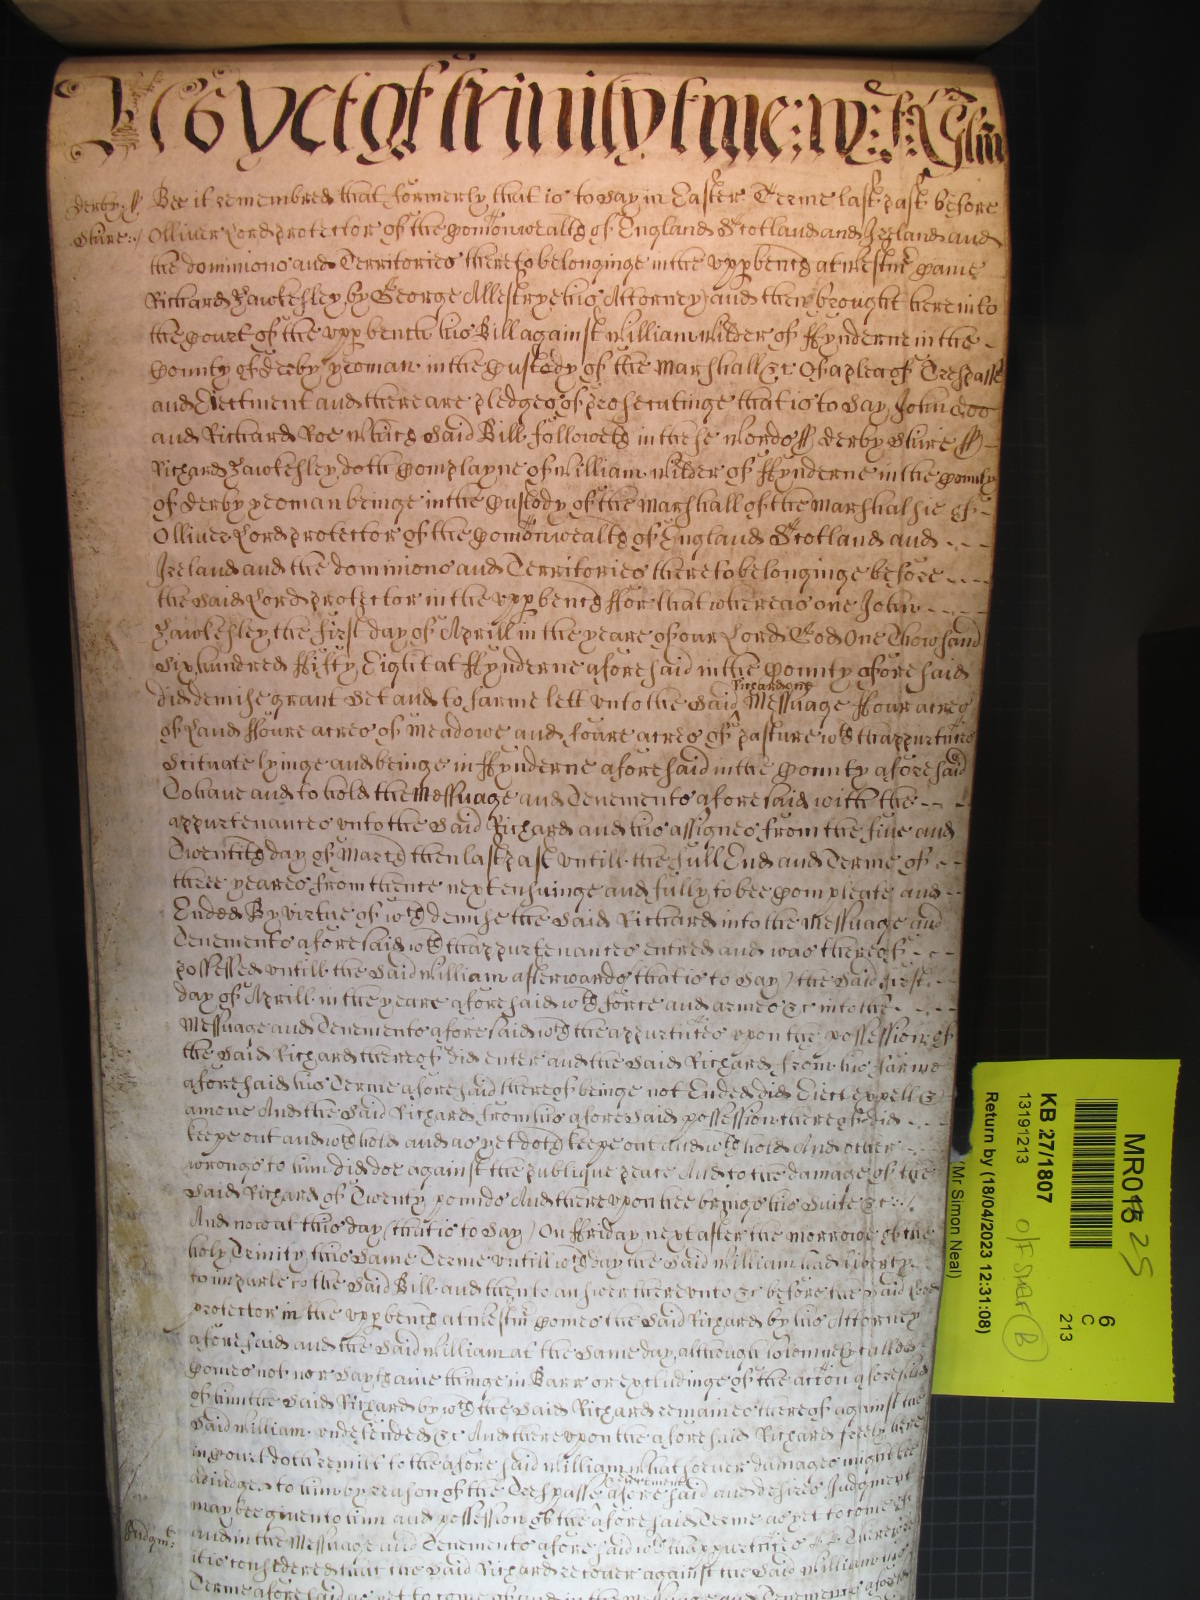 yet of Trinity tme:
derby: ss. Bee it remembred that formerly that is to say in Easter Terme last past before
shire: / Olliver Lord protector of the Comonwealth of England Scotland and Ireland and
the dominions and Territories thereto belonginge in the upp bench at Westmr came
Richard Fawkesley, by George Allestrye his Attorney and then brought here into
the Court of the upp bench his Bill against William Wilder of Fynderne in the -
County of derby yeoman in the Custody of the Marshall &c Of a plea of Trespasse
and Eiectment and there are pledges of prosecutinge that is to say John doo
and Richard Roe Which said Bill followeth in these Words ss derby shire ss -
Richard Fawkesley doth Complayne of William Wilder of Fynderne in the County
of derby yeoman beinge in the Custody of the Marshall of the Marshalsie of -
Olliver Lord protector of the Comonwealth of England Scotland and - - -
Ireland and the dominions and Territories thereto belonginge before - - -
the said Lord protector in the upp bench ffor that whereas one John - - - -
Fawkesley, the first day of Aprill in the yeare of our Lord God One Thowsand
Six hundred ffifty Eight at Fynderne aforesaid in the County aforesaid
Richard one
did demise grant Set and to farme lett unto the said ^ Messuage ffour acres
of Land ffoure acres of Meadowe and foure acres of pasture wth thappurtnces
Scituate lyinge and beinge in Fynderne aforesaid in the County aforesaid
To have and to hold the Messuage and Tenements aforesaid with the - - -
appurtenances unto the said Richard and his assignes from the five and
Twentith day of March then last past untill the full End and Terme of - -
three yeares from thence next ensuinge and fully to bee Compleate and -
Ended By virtue of wch demise the said Richard into the Messuage and
Tenements aforesaid wth thappurtenances entred and was thereof - - -
possessed untill the said William afterwards that is to say / the said first
day of Aprill in the yeare aforesaid wth force and armes &c into the - - -
Messuage and Tenements aforesaid wth the appurtnces upon the possession of
the said Richard thereof did enter and the said Richard from his farme
aforesaid his Terme aforesaid thereof beinge not Ended did Eiect expell &
amove And the said Richard from his aforesaid possession thereof did - - -
keepe out and wthhold and as yet doth keepe out and wthhold And other -
wrongs to him did doe against the publique peace And to the damage of the
said Richard of Twenty pounds And thereupon hee brings his Suite &c: /
And now at this day (that is to say) On ffriday next after the morrow of the
holy Trinity this same Terme untill wch day the said William had liberty
to imparle to the said Bill and then to answer thereunto &c before the said Lord
protector in the upp bench at Westmr Comes the said Richard by his Attorney
aforesaid and the said William at the same day, although solemnely called
Comes not nor sayth anie thinge in Barr or excludinge of the accon aforesaid
of him the said Richard by wch the said Richard remaines thereof against the
said William undefended &c And thereupon the aforesaid Richard freely here
in Court doth remitt to the aforesaid William Whatsoever damages might bee
adiudged to him by reason of the Trespasse aforesaid and desires Judgment
may bee given to him and possession of the aforesaid Terme as yet to come of
Judgmt: and in the Messuage and Tenements aforesaid wth thappurtnces &c Therefore
it is considered that the said Richard recover against the said William his
Terme aforesaid as yet to come of and in the Messuage and Tenements aforesaid
MR018 25
KB 27/1807
13191213
6
C
213
Return by (18/04/2023 12:31:08)
(Mr Simon Neal)